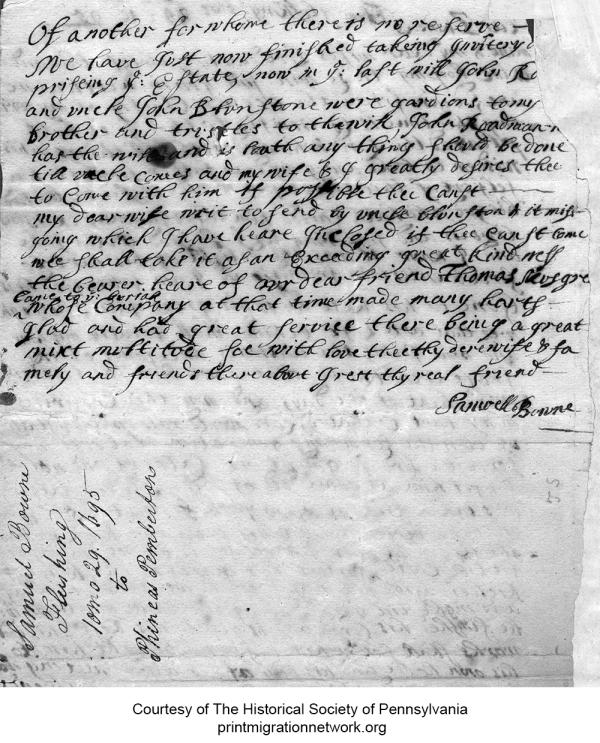 Of another for whome there is no reserve
We have Just now finished takeing Invitery
priseing yᵉ: Estate, now in yᵉ: last will John
and uncle John Blunstone were gardions to my
brother and trustees to the will, John Roadman
has the will and is loath any things should be done
till uncle comes and my wife & I greatly desires thee
to Come with him if possible thee Canst
my dear wife writ to send by uncle blunston & it mis-
going which I have heare Inclosed if thee Canst Come
wee shall take it as an Exceading great kindness
the bearer heare of our dear friend Thomas
Came to yᵉ: burial
whose Company at that time made many harts
glad and had great service there being a great
mixt multitode soe with love thee thy dere wife & fa
mely and friends thereabout I rest thy real friend
Samuell Bowne
Samuel Bowne
Flushing
10mo 29. 1695
to
Phineas Pemberton
55
Courtesy of The Historical Society of Pennsylvania
printmigrationnetwork.org